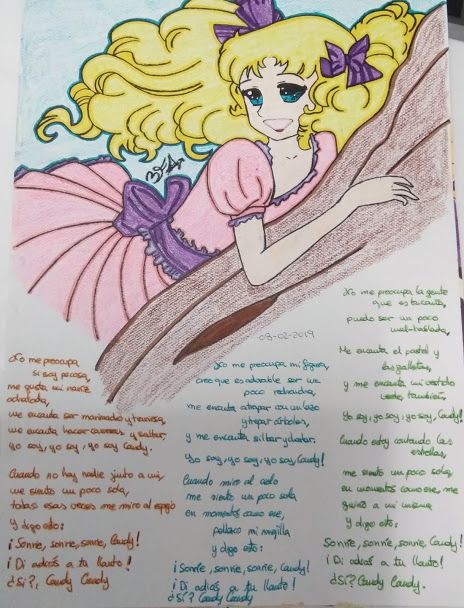 08-02-2019
No me preocupa
si soy pecosa,
me gusta mi nariz
achatada,
me encanta ser marimacho y traviesa,
me encanta hacer carreras y saltar,
yo soy, yo soy, yo soy Candy.
Cuando no hay nadie junto a mi,
me siento un poco sola,
todas esas veces me miro al espejo
y digo esto:
¡Sonríe, sonríe, sonríe, Candy!
¡Di adiós a tu llanto!
¿Sí?, Candy Candy
No me preocupa mi figura,
creo que es adorable ser un
poco rechoncha,
me encanta atrapar con un lazo
y trepar árboles,
y me encanta silbar y bailar.
Yo soy, yo soy, yo soy, Candy!
Cuando miro al cielo
me siento un poco sola
en momentos como ese,
pellizco mi mejilla
y digo esto:
¡Sonríe, sonríe, sonríe, Candy!
¡Di adiós a tu llanto!
¿Sí?, Candy Candy
No me preocupa la gente
que es bonita,
puedo ser un poco
mal-hablada,
Me encanta el pastel y
las galletas,
y me encanta mi vestido
verde, también,
Yo soy, yo soy, yo soy, Candy!
Cuando estoy contando las
estrellas,
me siento un poco sola,
en momentos como ese, me
guiño a mi misma
y digo esto:
Sonríe, sonríe, sonríe, Candy!
¡Di adiós a tu llanto!
¿Sí? Candy Candy.